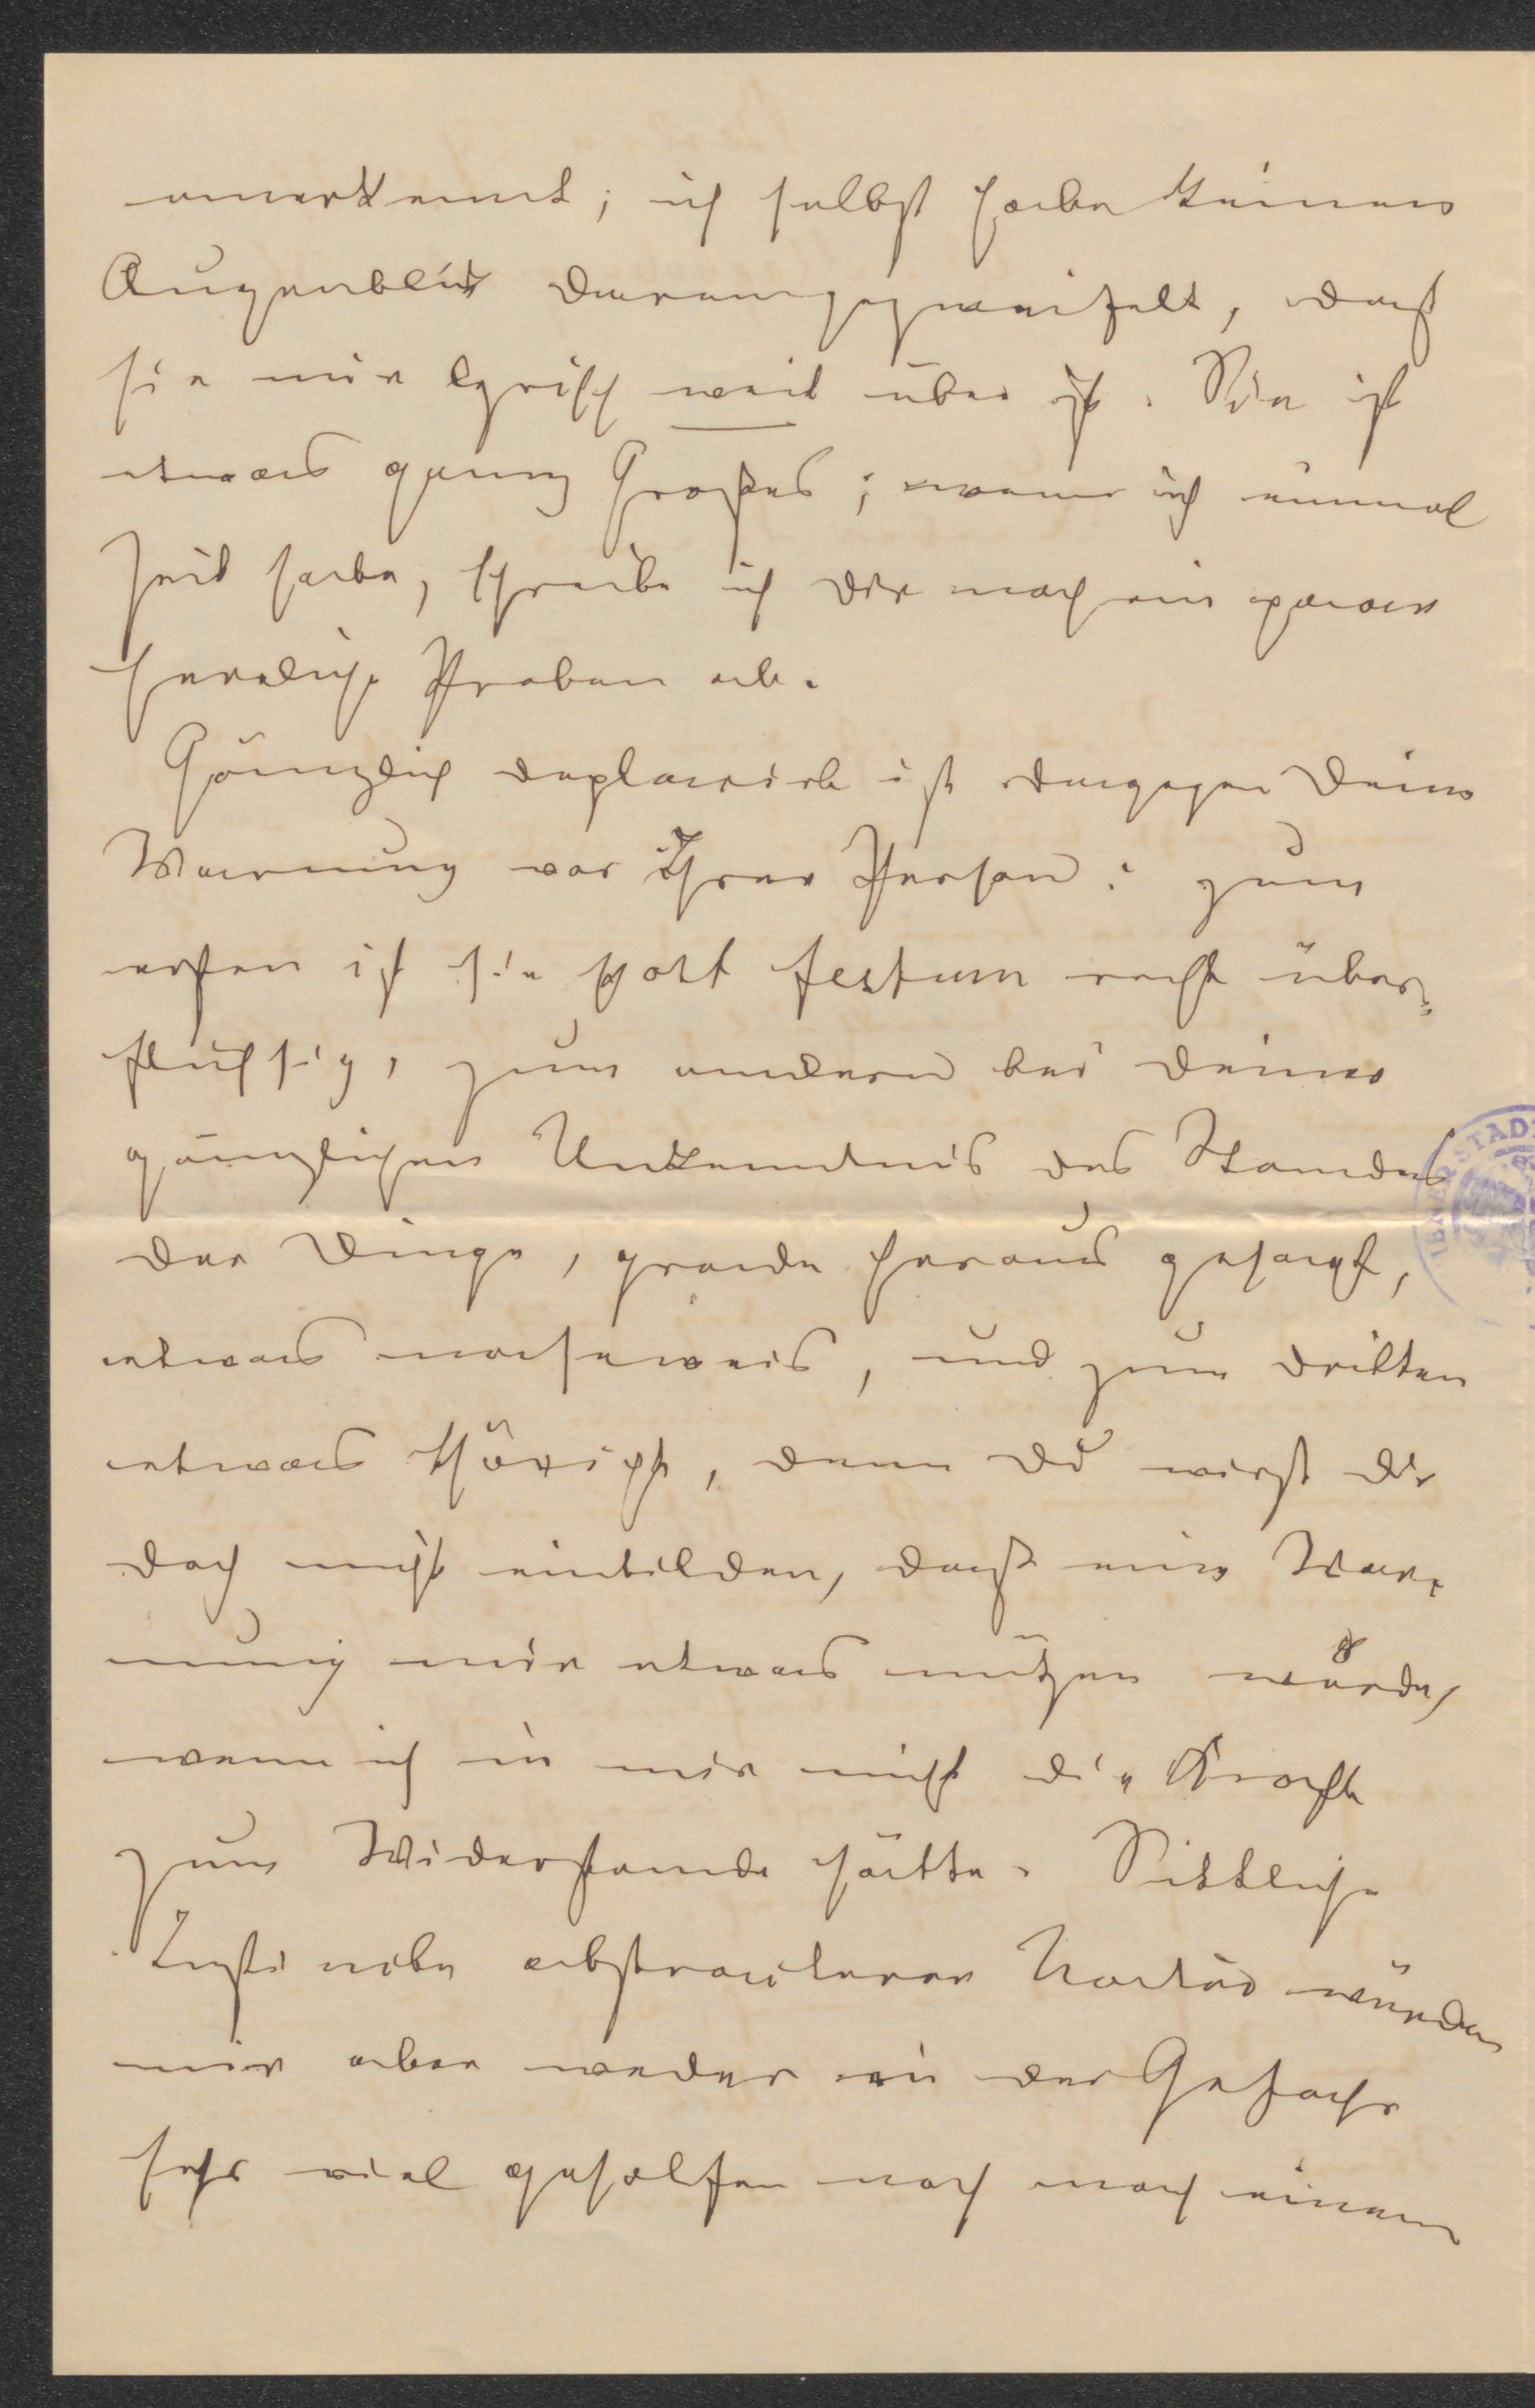 anerkennt; ich selbst habe keinen
Augenblick daran gezweifelt, daß
sie mir lyrisch weit über ist. Sie ist
etwas ganz Großes; wenn ich einmal
Zeit habe, schreibe ich dir noch ein paar
herrliche Proben ab.
Gänzlich deplacirt ist dagegen deine
Warnung vor Ihrer Person: zum
ersten ist sie post festum recht über-
flüssig, zum andern bei deiner
gänzlichen Unkenntnis des Standes
der Dinge, grade heraus gesagt,
etwas naseweis, und zum dritten
etwas thöricht, denn du wirst dir
doch nicht einbilden, daß eine War-
nung mir etwas nützen würde,
wenn ich in mir nicht die Kraft
zum Widerstande hätte. Sittliche
abstracterer Natur würden
mir aber weder in der Gefahr
sehr viel geholfen noch nach einem
STAD